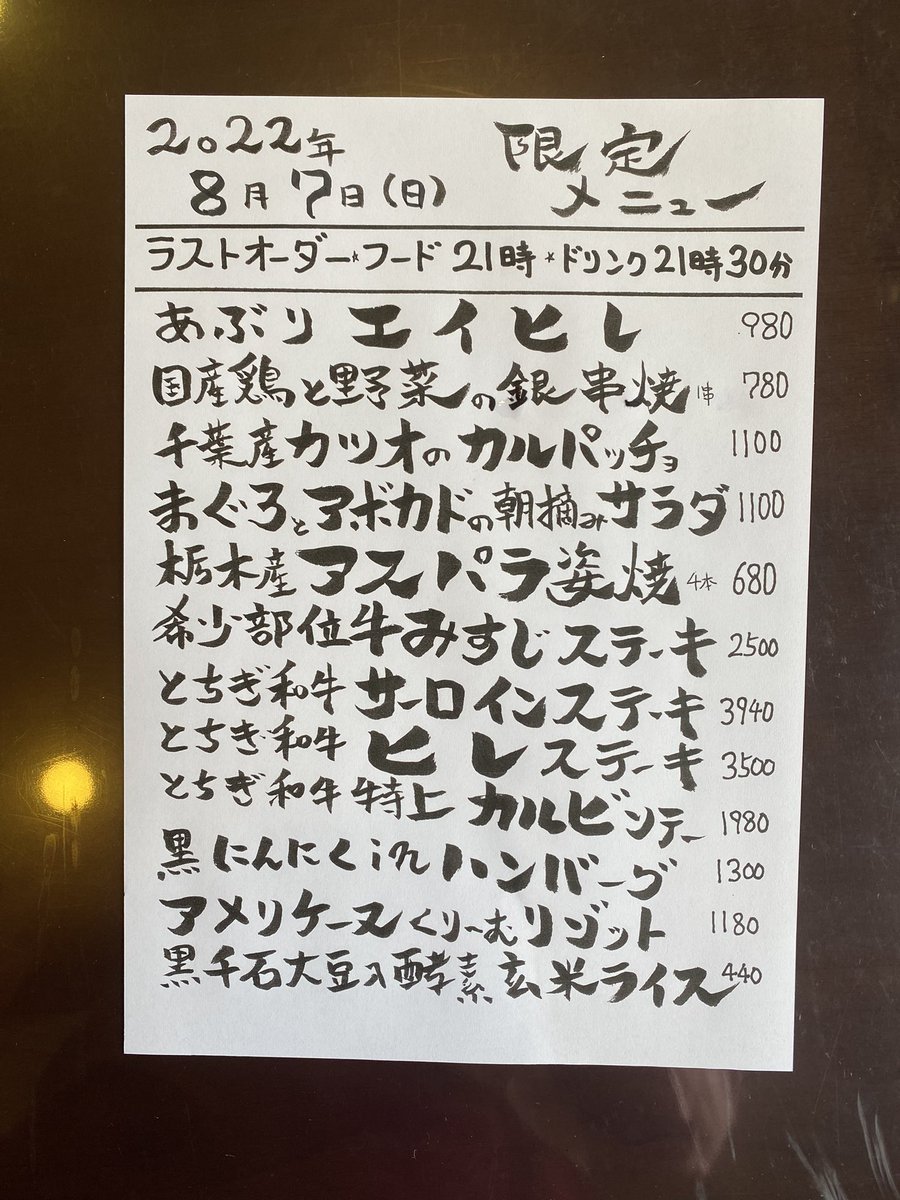 2022年 限定
8月7日(日) メニュー
ラストオーダー*フード 21時 *ドリンク21時30分
あぶり エイヒレ 980
国産鶏と野菜の銀串焼 1串 780
千葉産カツオのカルパッチョ 1100
まぐろとアボカドの朝摘みサラダ 1100
栃木産アスパラ姿焼 4本 680
希少部位牛みすじステーキ 2500
とちぎ和牛 サーロインステーキ 3940
とちぎ和牛 ヒレステーキ 3500
とちぎ和牛 特上 カルビソテー 1980
黒にんにくinハンバーグ 1300
アメリケーヌくりーむリゾット 1180
黒千石大豆入酵素玄米ライス 440